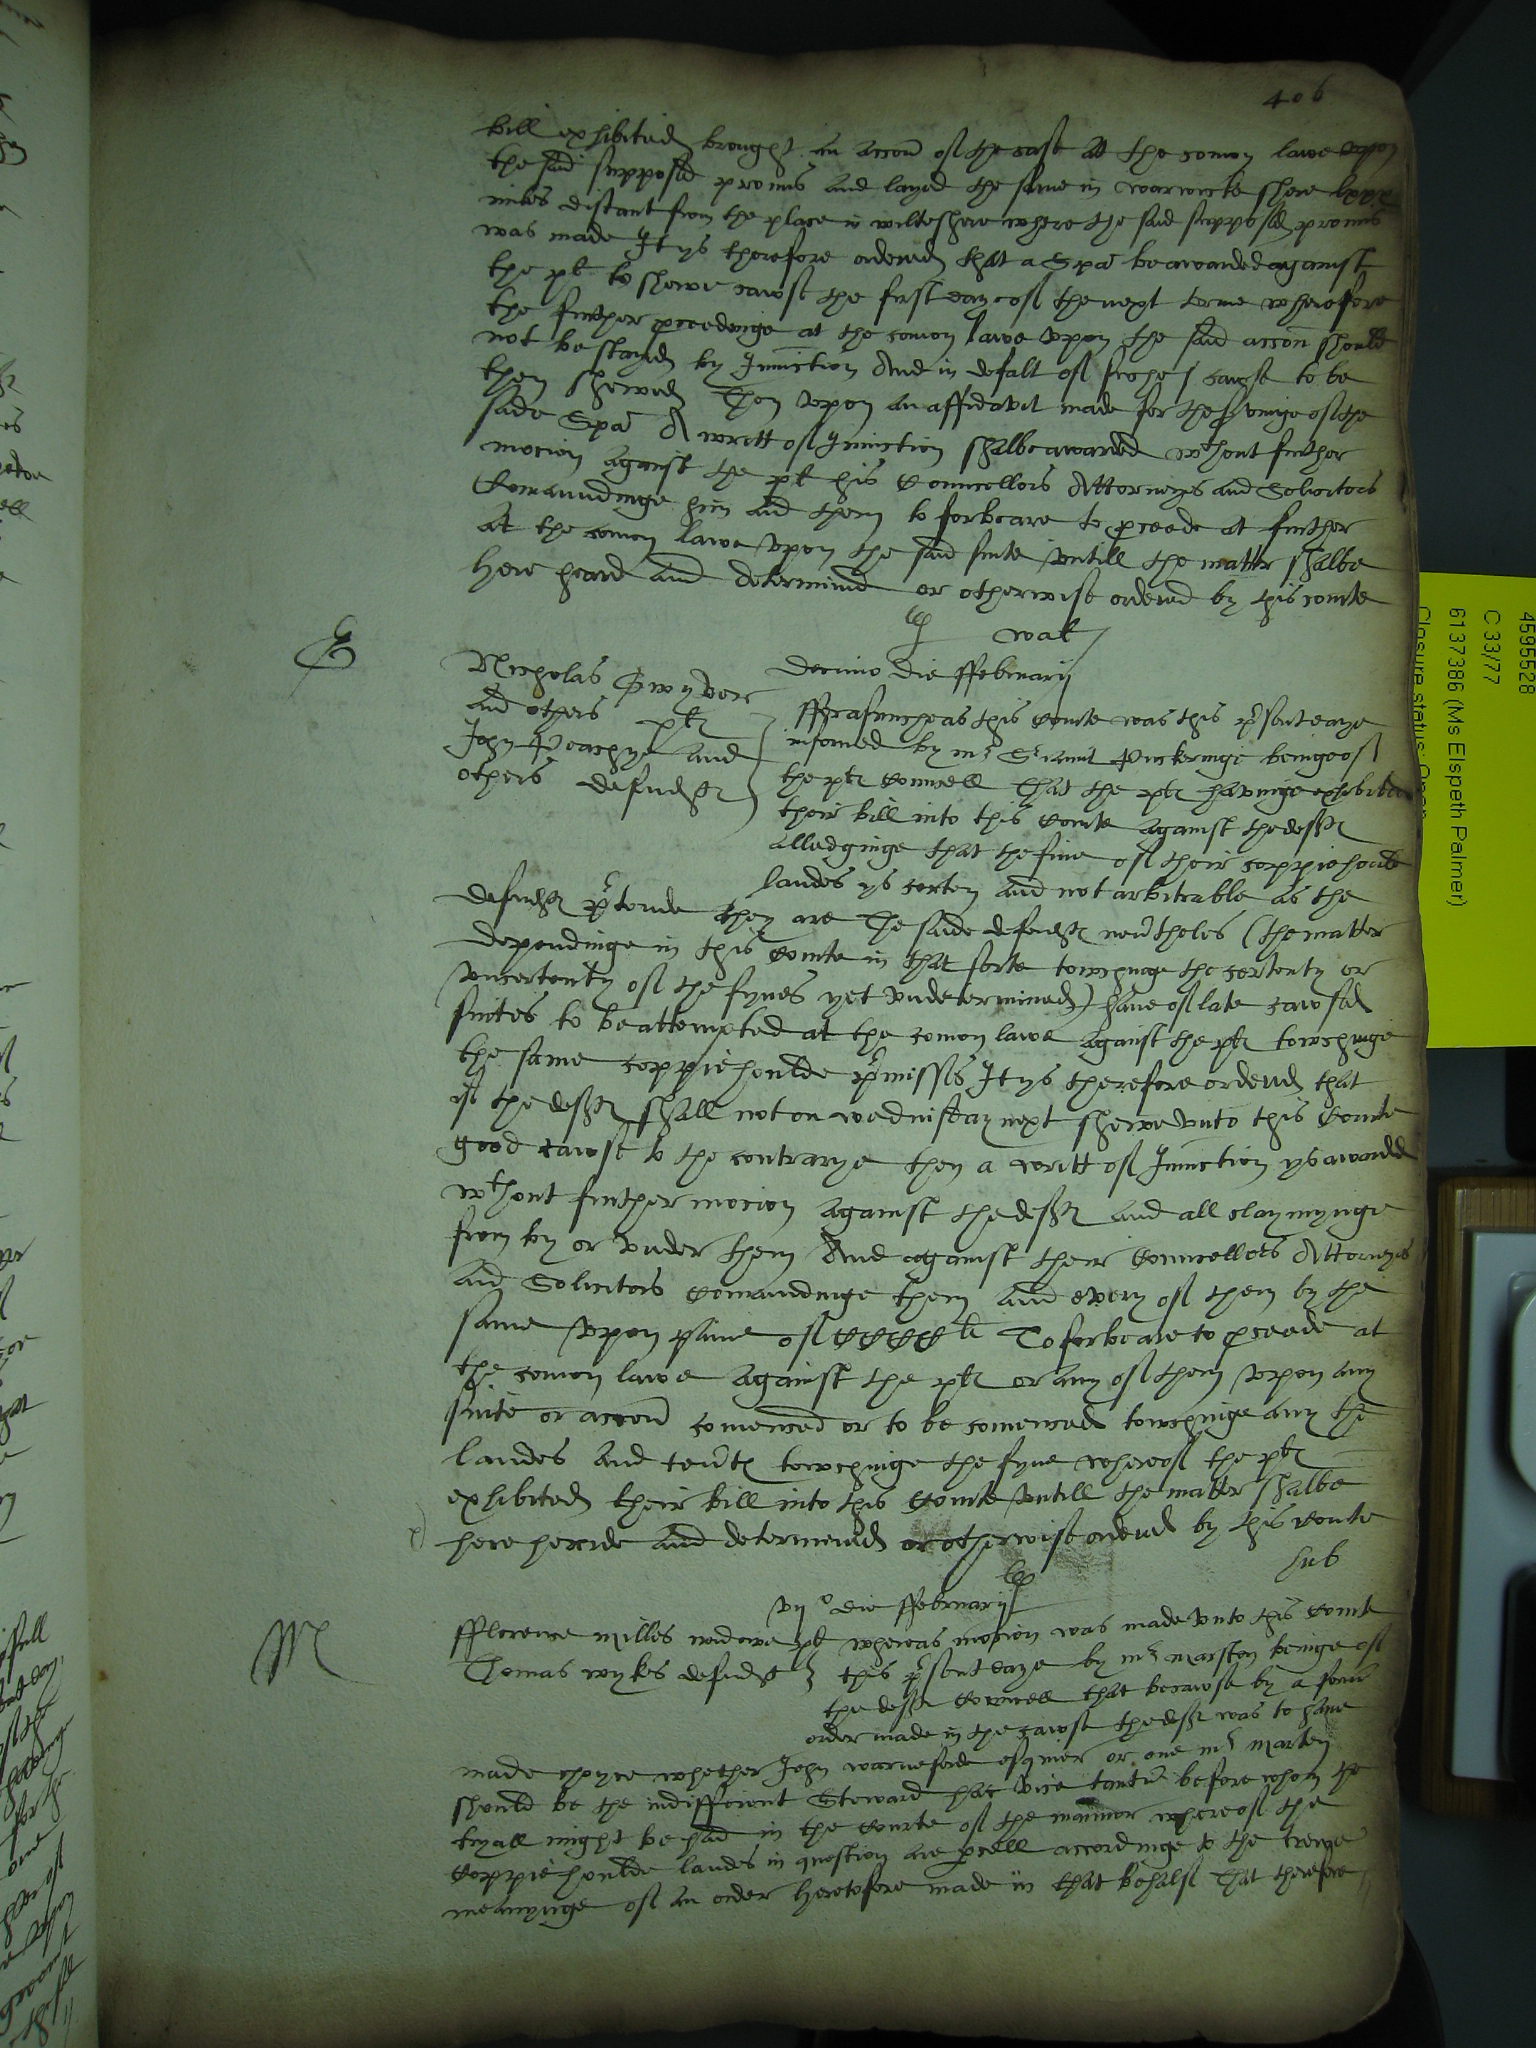 406
bill exhibited brought an accon of the case at the comon lawe vpon
the said supposed promis and layed the same in warwicke shere lxxx
miles distant from the place in wilteshere where the said supposed promis
was made It ys therefore ordered that a Spa be awarded against
the plt to shewe cawse the first daye of the next terme wherefore
the further pceedinge at the comon lawe vpon the said accon should
not be stayed by Iniunction And in defalt of suche cawse to be
then shewed Then vpon an affidavit made for the svinge of the
saide Spa A writt of Iniunction shalbe awarded wthout further
mocion against the plt his Councellors Attorneys and Solicitors
Comaundinge him and them to forbeare to pceede at further
at the comon lawe vpon the said suite vntill the matter shalbe
here heard and determined or otherwise ordered by this courte
wal
decimo die ffebruarij
Nicholas Gwyver
and others plts
John Peachye and
others defendts
fforasmuche as this Courte was this psent daye
infomed by mr Seriant Puckeringe beinge of
the plts Councell That the plts havinge exhibited
their bill into this Courte against the defts
alledginge that the fine of their coppiehould
landes ys certen and not arbitrable as the
defendts ptende they are The saide defendts nevtheles (the matter
dependinge in this Courte in that sorte towchinge the certenty or
vncertenty of the fynes yet vndetermined) have of late cawsed
suites to be attempted at the comon lawe against the plts towchinge
the same coppiehoulde pmisses It ys therefore ordered that
if the defts shall not on wednisday next shewe vnto this Courte
good cawse to the contrarye then a writt of Iniunction ys awarded
wthout further mocion against the defts and all claymynge
from by or vnder them And against their Councellors Attorneys
and Solicitors Comaundinge them and every of them by the
same vpon paine of CCCCC li To forbeare to pceede at
the comon lawe against the plts or any of them vpon any
suite or accon comenced or to be comenced towchinge any the
landes and tents towchinge the fyne whereof the plts
exhibited their bill into this Courte vntill the matter shalbe
here herde and determined or otherwise ordered by this Courte
sub
vijo die ffebruarij
M
fflorence milles widowe plt
Thomas wykes defendt
wheras mocion was made vnto this Courte
this psent daye by mr marston beinge of
the defts Councell that becawse by a former
order made in the cawse the deft was to have
made choyce whether John warneforde esquier or one mr marten
should be the indifferent Steward hac vice tantu before whom the
tryall might be had in the Courte of the mannor whereof the
Coppiehoulde landes in question are pcell accordinge to the trewe
meanynge of an order heretofore made in that behalf That therefore
4595528
C 33/77
6137386 (Ms Elspeth Palmer)
Closure status: Open